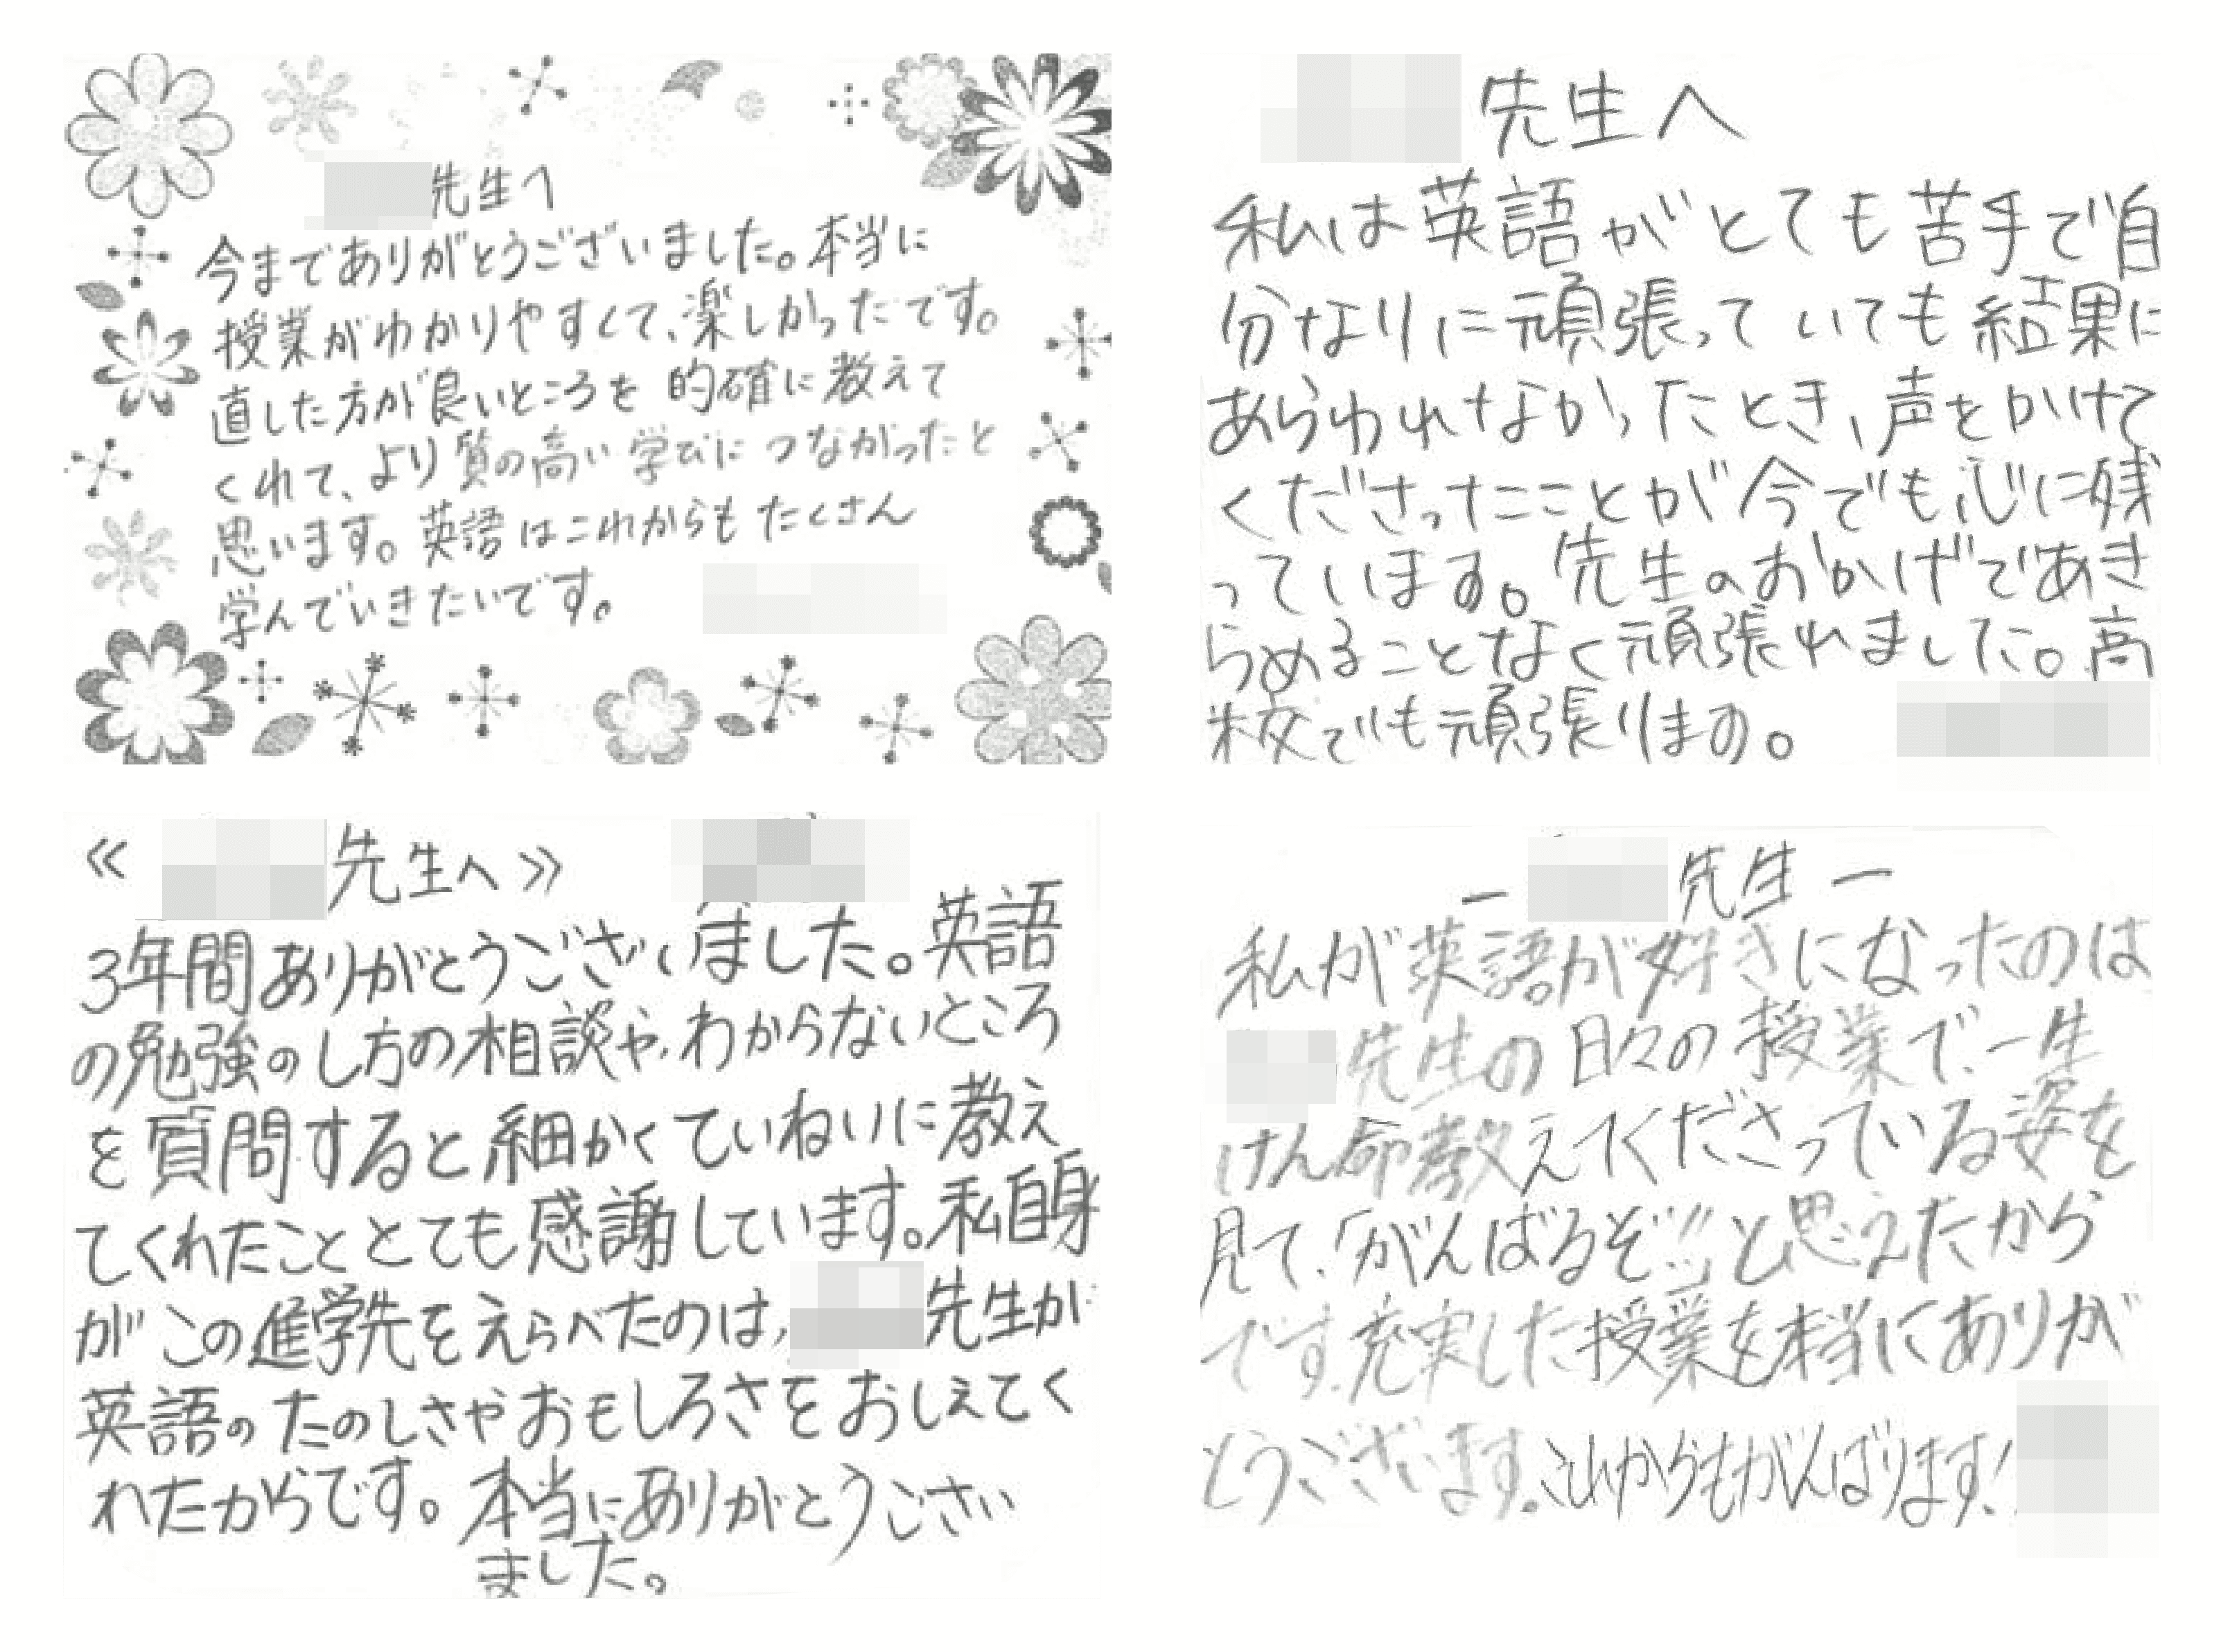 先生へ
今までありがとうございました。本当に
授業がわかりやすくて、楽しかったです。
直した方が良いところを 的確に教えて
くれて、より質の高い学びにつながったと
思います。英語はこれからもたくさん
学んでいきたいです。
先生へ
私は英語がとても苦手で自
分なりに頑張っていても結果に
あらわれなかったとき、声をかけて
くださったことが今でも心に残
っています。先生のおかげであき
らめることなく頑張れました。高
校でも頑張ります。
≪ 先生へ ≫
3年間ありがとうございました。英語
の勉強のし方の相談や、わからないところ
を質問すると細かくていねいに教え
てくれたこととても感謝しています。私自身
がこの進学先をえらべたのは、先生が
英語のたのしさやおもしろさをおしえてく
れたからです。本当にありがとうござい
ました。
ー 先生 ー
私が英語が好きになったのは
先生の日々の授業で、一生
けん命教えてくださっている姿を
見て、「がんばるぞ!!」と思えたから
です。充実した授業を本当にありが
とうございます。これからもがんばります!